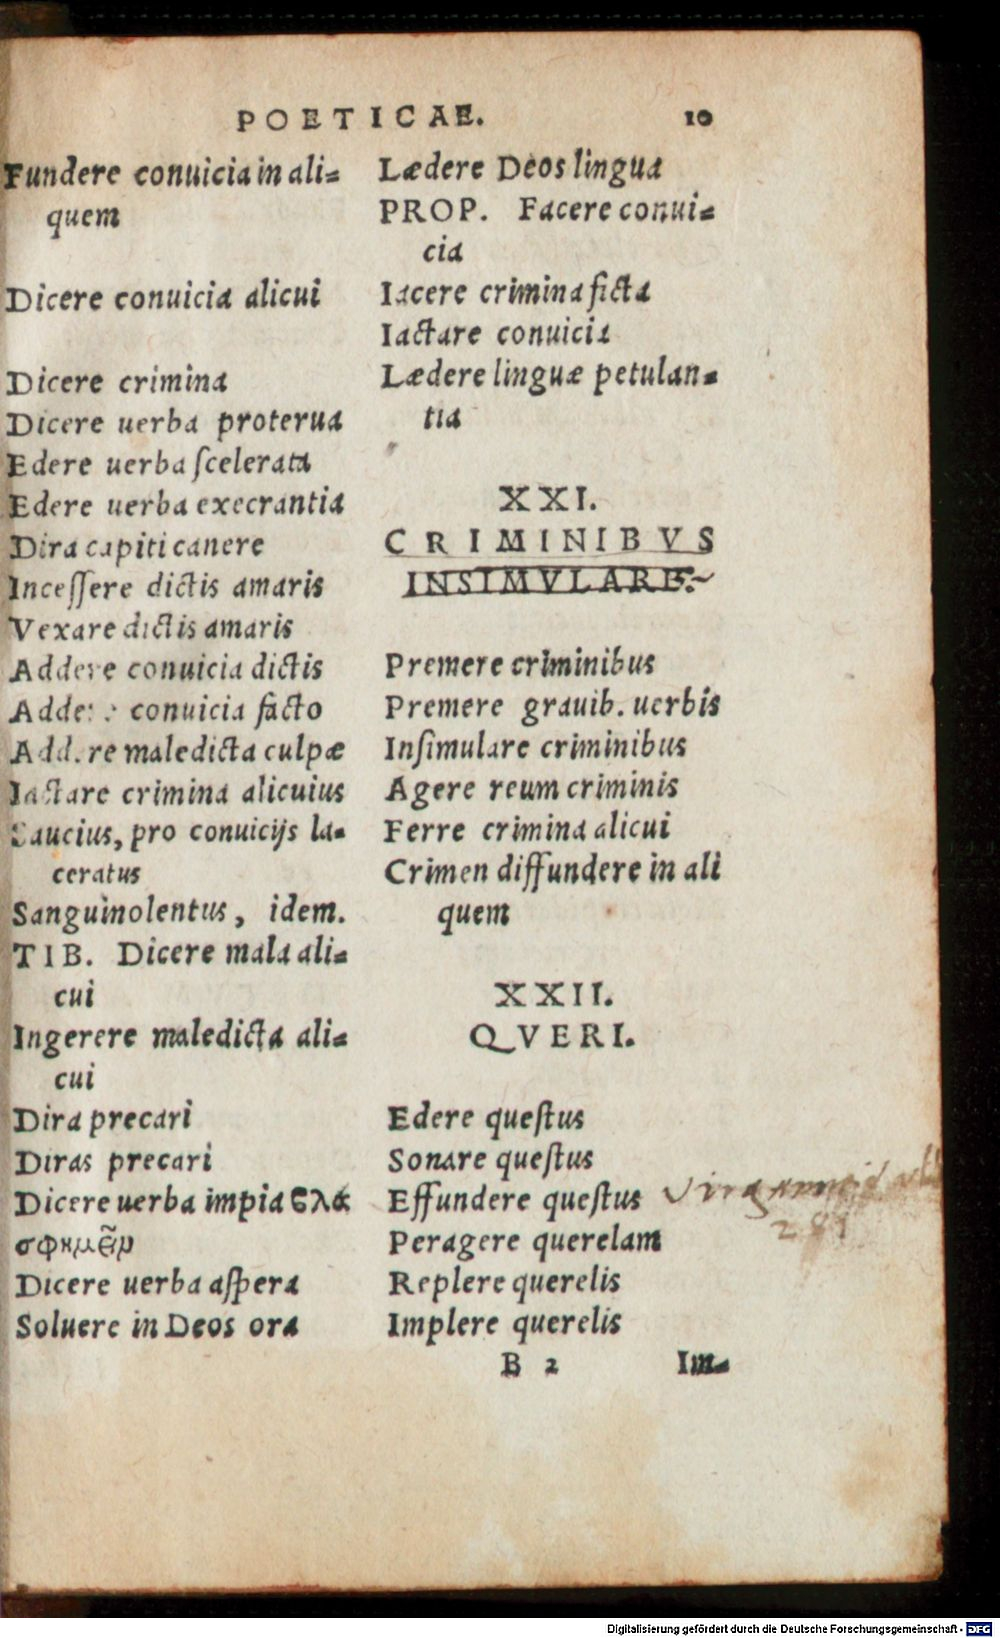 POETICAE. 10
Fundere conuicia in ali-
quem
Dicere conuicia alicui
Dicere crimina
Dicere uerba proterua
Edere uerba ſcelerata
Edere uerba execrantia
Dira capiti canere
Inceſſere dictis amaris
Vexare dictis amaris
Addere conuicia dictis
Addere conuicia facto
Addere maledicta culpæ
Iactare crimina alicuius
Saucius, pro conuicijs la-
ceratus
Sanguinolentus, idem.
TIB. Dicere mala ali-
cui
Ingerere maledicta ali-
cui
Dira precari
Diras precari
Dicere uerba impia βλα
σφημεῖν
Dicere uerba aſpera
Soluere in Deos ora
Lædere Deos lingua
PROP. Facere conui-
cia
Iacere crimina ficta
Iactare conuicia
Lædere linguæ petulan-
tia
XXI.
CRIMINIBVS
INSIMVLARE.
Premere criminibus
Premere grauib. uerbis
Inſimulare criminibus
Agere reum criminis
Ferre crimina alicui
Crimen diffundere in ali
quem
XXII.
QVERI.
Edere queſtus
Sonare queſtus
Effundere queſtus
Peragere querelam
Replere querelis
Implere querelis
B 2 Im-
Digitalisierung gefördert durch die Deutsche Forschungsgemeinschaft - DFG